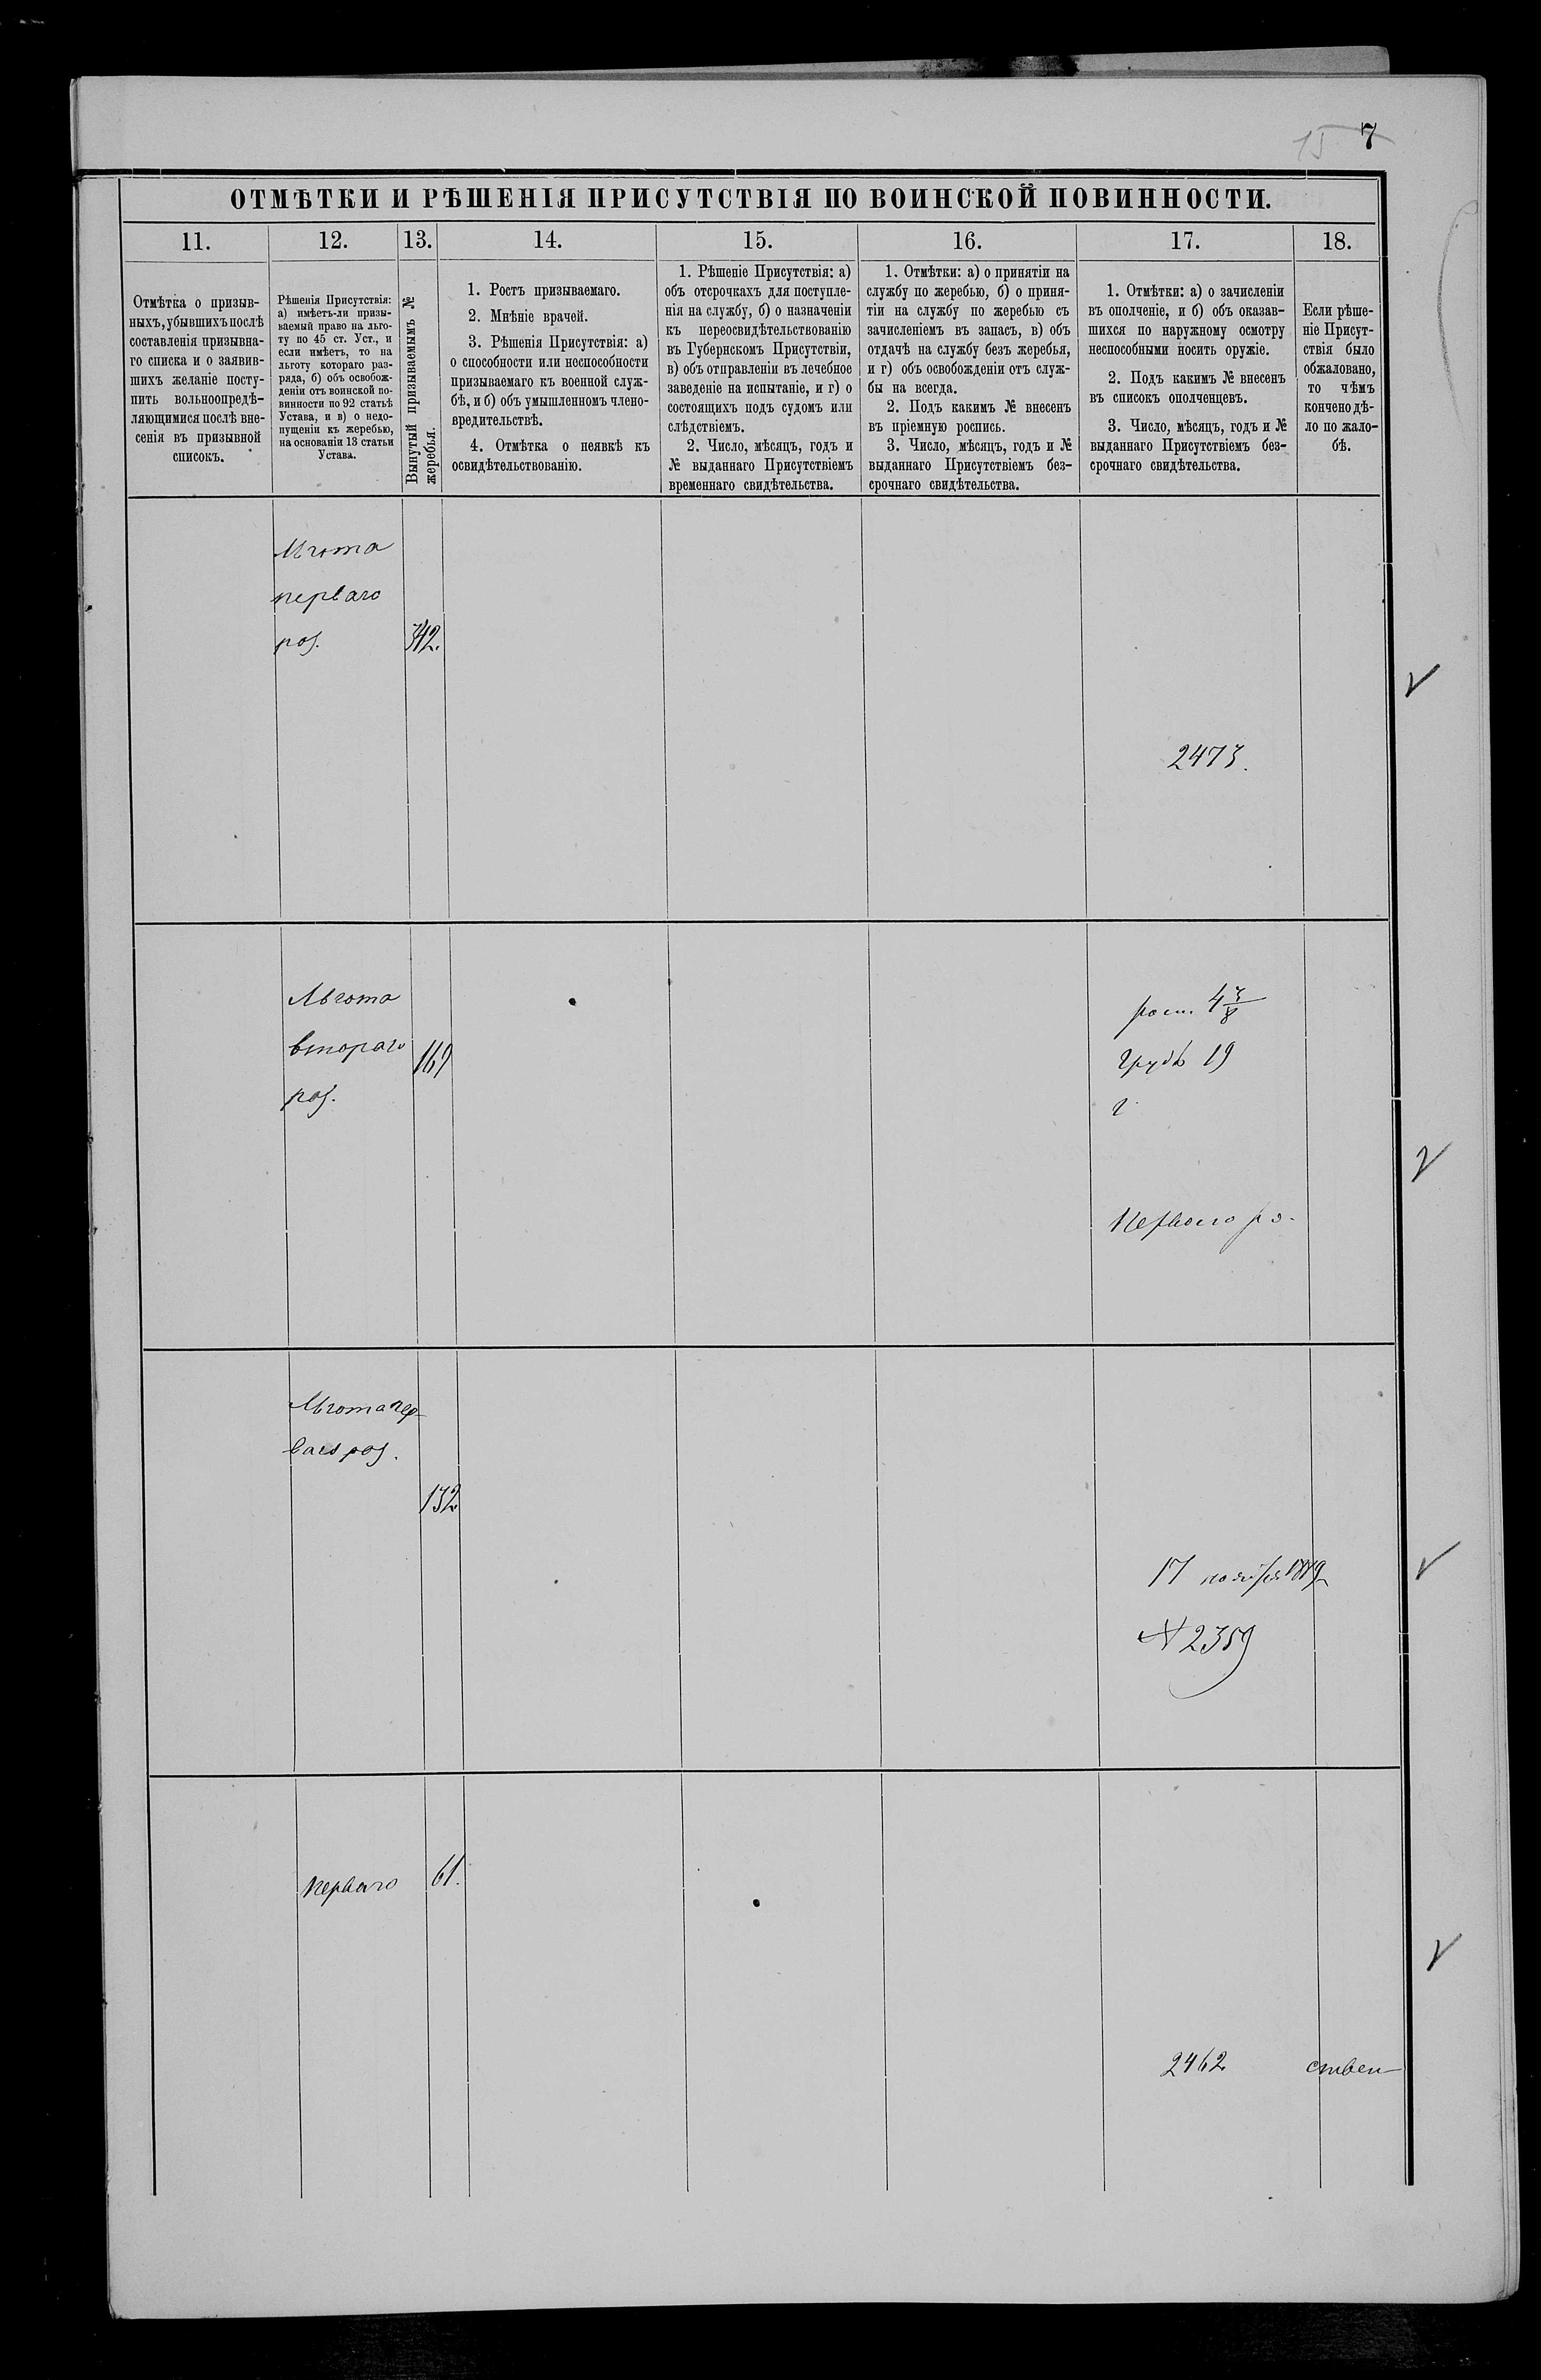 15 7
ОТМѢТКИ И РѢШЕНІЯ ПРИСУТСТВІЯ ПО ВОИНСКОЙ ПОВИННОСТИ.
11.
Отмѣтка о призыв-
ныхъ, убывшихъ послѣ
составленія призывна-
го списка и о заявив-
шихъ желаніе посту-
пить вольноопредѣ-
ляющимися послѣ вне-
сенія въ призывной
списокъ.
12.
Рѣшенія Присутствія:
а) имѣетъ-ли призы-
ваемый право на льго-
ту по 45 ст. Уст., и
если имѣетъ, то на
льготу котораго раз-
ряда, б) объ освобож-
деніи отъ воинской по-
винности по 92 статьѣ
Устава, и в) о недо-
пущеніи къ жеребью,
на основаніи 13 статьи
Устава.
13.
Вынутый призываемымъ №
жеребья.
14.
1. Ростъ призываемаго.
2. Мнѣніе врачей.
3. Рѣшенія Присутствія: а)
о способности или неспособности
призываемаго къ военной служ-
бѣ, и б) объ умышленномъ члено-
вредительствѣ.
4. Отмѣтка о неявкѣ къ
освидѣтельствованію.
15.
1. Рѣшеніе Присутствія: а)
объ отсрочкахъ для поступле-
нія на службу, б) о назначеніи
къ переосвидѣтельствованію
въ Губернскомъ Присутствіи,
в) объ отправленіи въ лечебное
заведеніе на испытаніе, и г) о
состоящихъ подъ судомъ или
слѣдствіемъ.
2. Число, мѣсяцъ, годъ и
№ выданнаго Присутствіемъ
временнаго свидѣтельства.
16.
1. Отмѣтки: а) о принятіи на
службу по жеребью, б) о приня-
тіи на службу по жеребью съ
зачисленіемъ въ запасъ, в) объ
отдачѣ на службу безъ жеребья,
и г) объ освобожденіи отъ служ-
бы на всегда.
2. Подъ какимъ № внесенъ
въ пріемную роспись.
3. Число, мѣсяцъ, годъ и №
выданнаго Присутствіемъ без-
срочнаго свидѣтельства.
17.
1. Отмѣтки: а) о зачисленіи
въ ополченіе, и б) объ оказав-
шихся по наружному осмотру
неспособными носить оружіе.
2. Подъ какимъ № внесенъ
въ списокъ ополченцевъ.
3. Число, мѣсяцъ, годъ и №
выданнаго Присутствіемъ без-
срочнаго свидѣтельства.
18.
Если рѣше-
ніе Присут-
ствія было
обжаловано,
то чѣмъ
кончено дѣ-
ло по жало-
бѣ.
Льгота
перваго
раз.
342.
2473.
Льгота
втораго
раз.
169
рост. 4 3/8
Грудь 19
Перваго ра-
Льгота пер-
ваго раз.
132
17 ноября 1879
№ 2359
Перваго
61.
2462
ствен